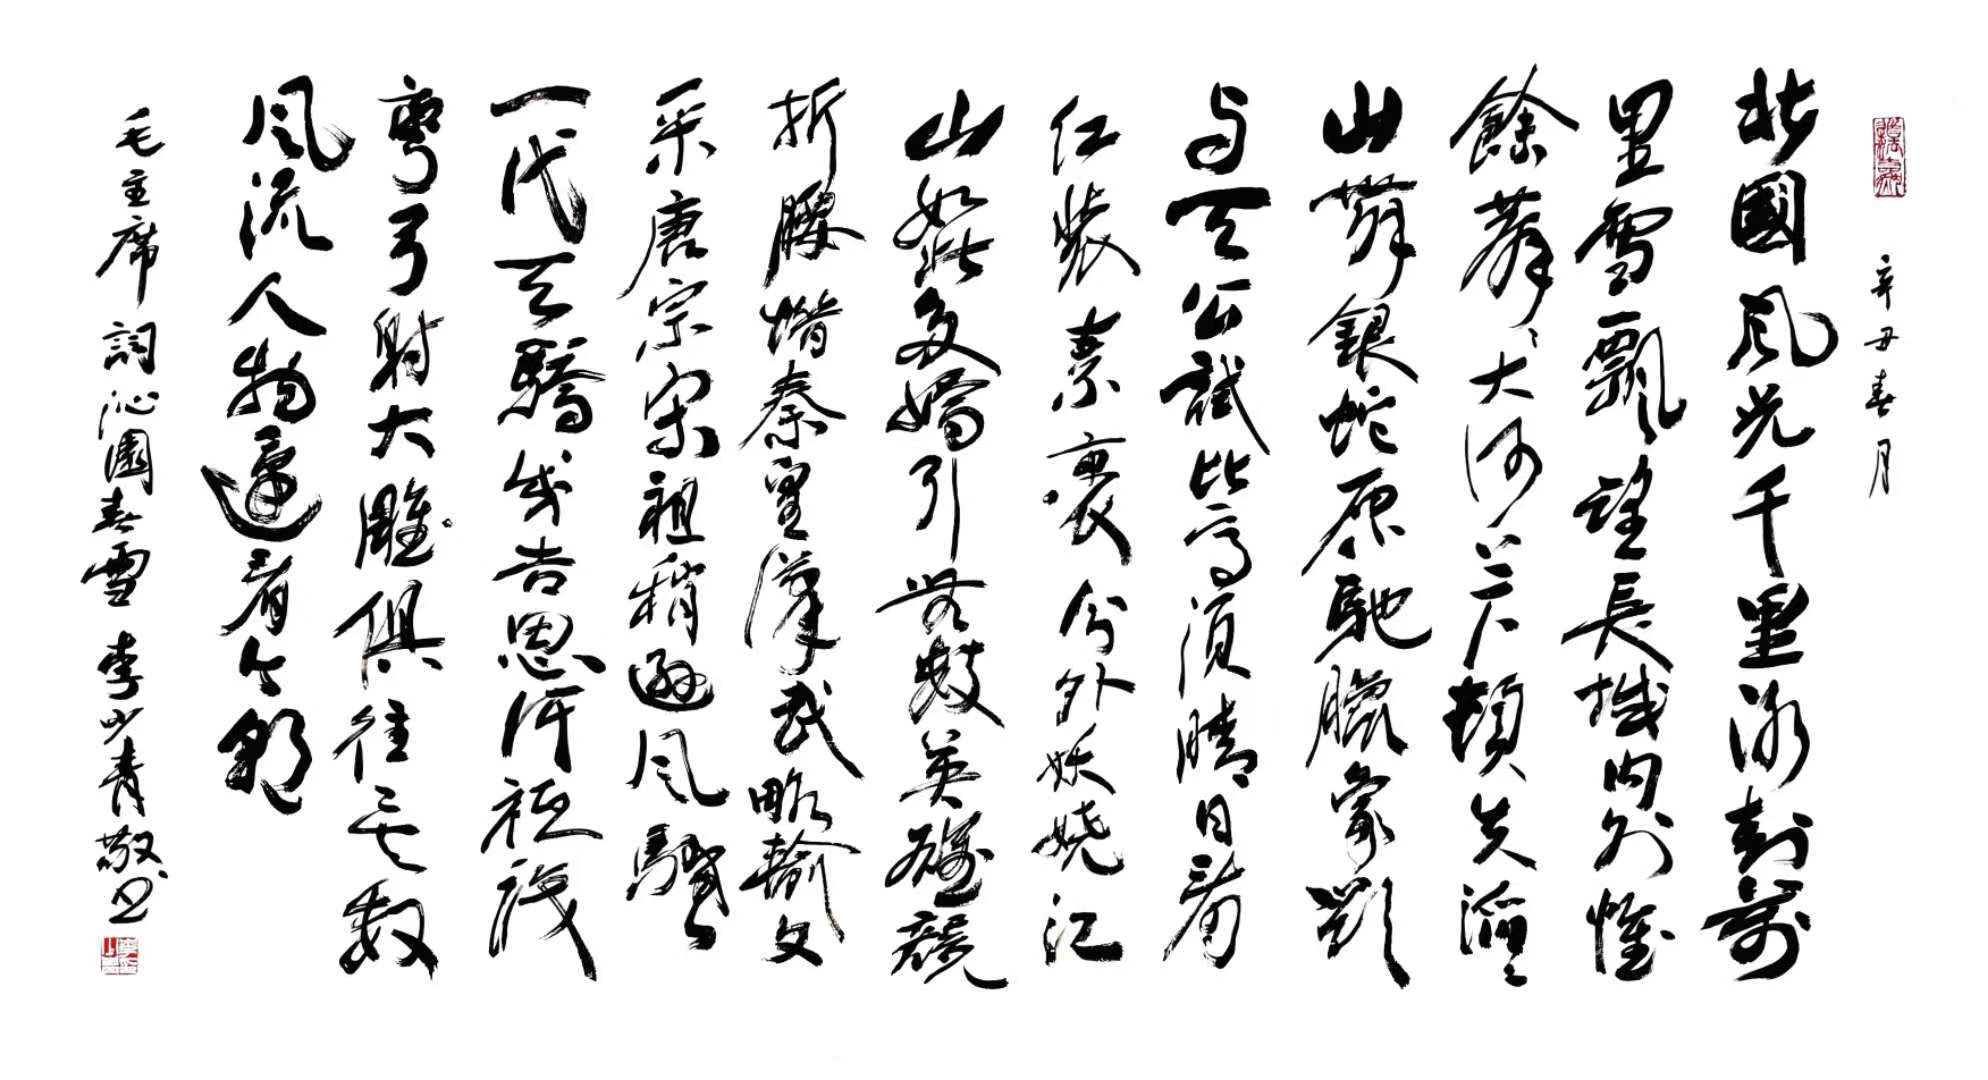 辛丑春月
北國風光千里冰封萬
里雪飄望長城內外惟
餘莽莽大河上下頓失滔滔
山舞銀蛇原馳臘象欲
与天公試比高須晴日看
红裝素裹分外妖嬈江
山如此多嬌引無數英雄競
折腰惜秦皇漢武略輸文
采唐宗宋祖稍遜風騷
一代天驕成吉思汗祗識
彎弓射大雕俱往矣數
風流人物還看今朝
毛主席詞沁園春雪 李少青敬书